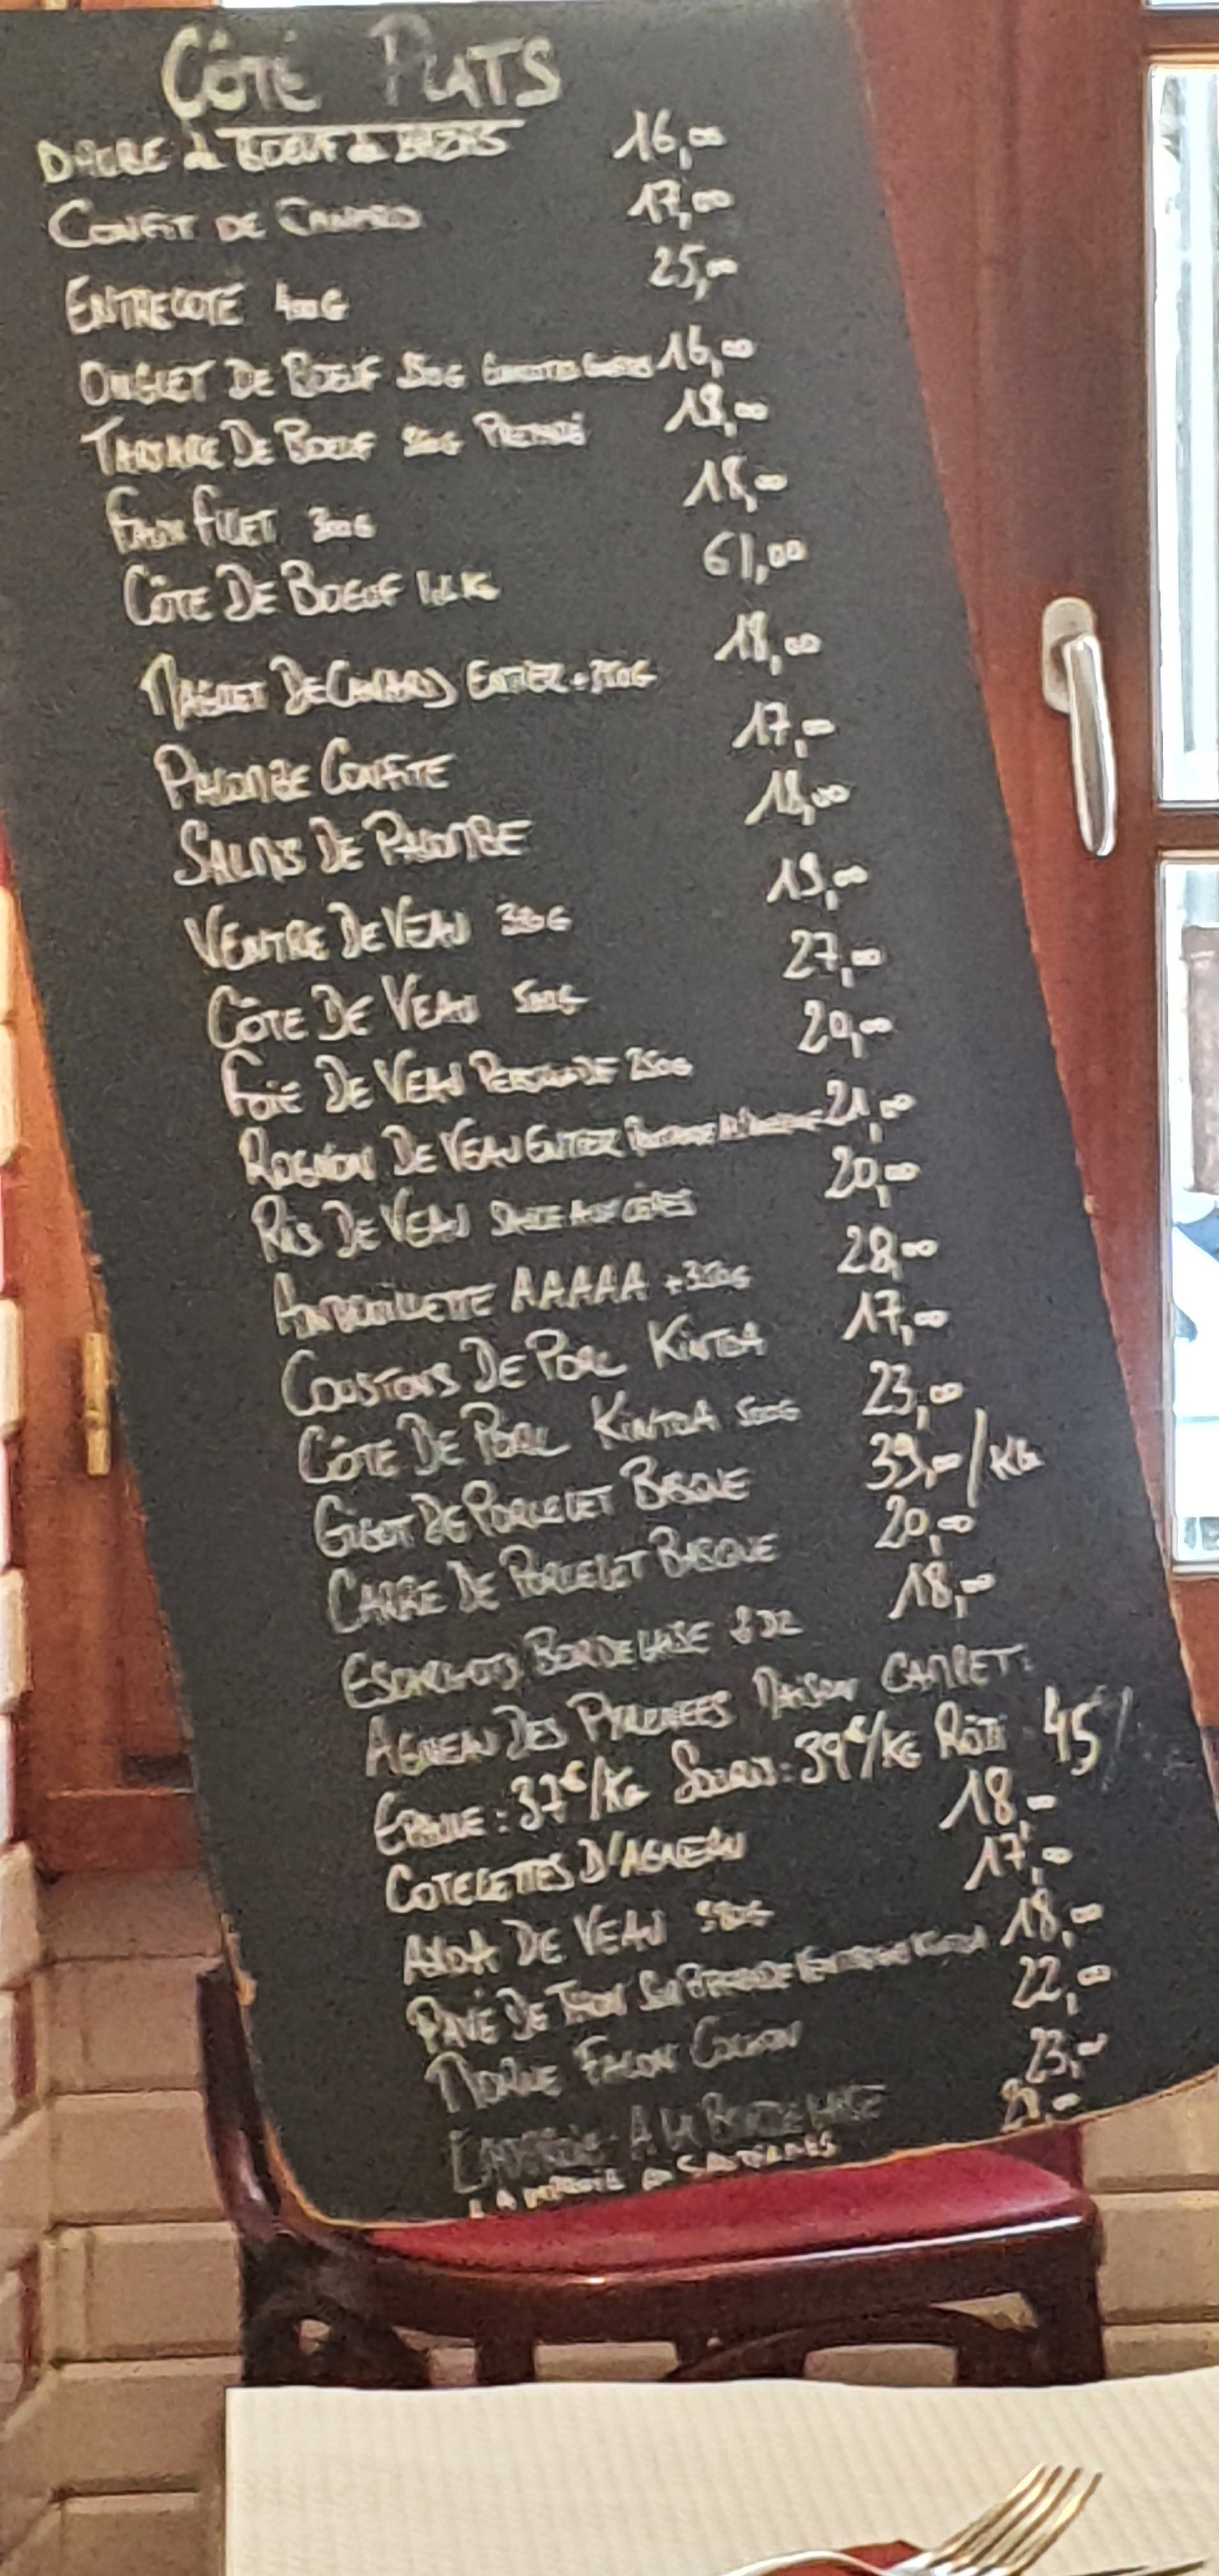 CÔTÉ PLATS
DAUBE de BOEUF de BAZAS 16,00
CONFIT DE CANARD 17,00
ENTRECOTE 400G 25,00
ONGLET DE BOEUF 16,00
TARTARE DE BOEUF 18,00
FAUX FILET 300G 18,00
CÔTE DE BOEUF 61,00
MAGRET DE CANARD ENTIER +350G 18,00
PALOMBE CONFITE 17,00
SALMIS DE PALOMBE 18,00
VENTRE DE VEAU 19,00
CÔTE DE VEAU 500G 27,00
FOIE DE VEAU PERSILLADE 250G 20,00
ROGNON DE VEAU ENTIER 21,00
RIS DE VEAU SAUCE AUX CÈPES 20,00
ANDOUILLETTE AAAAA +350G 28,00
COUSTONS DE PORC KINTOA 17,00
CÔTE DE PORC KINTOA 500G 23,00
GIGOT DE PORCELET BASQUE 39,00/KG
CARRE DE PORCELET BASQUE 20,00
ESCARGOTS BORDELAISE 2 DZ 18,00
AGNEAU DES PYRENEES MAISON CAMPET:
EPAULE: 37€/KG SOURIS: 39€/KG RÔTI 45/
COTELETTES D'AGNEAU 18,00
AXOA DE VEAU 17,00
PAVÉ DE THON SUR 18,00
MORUE FACON COCHON 22,00
LAMPROIE A LA BORDELAISE 23,00
LAMPROIE AU SAUTERNES